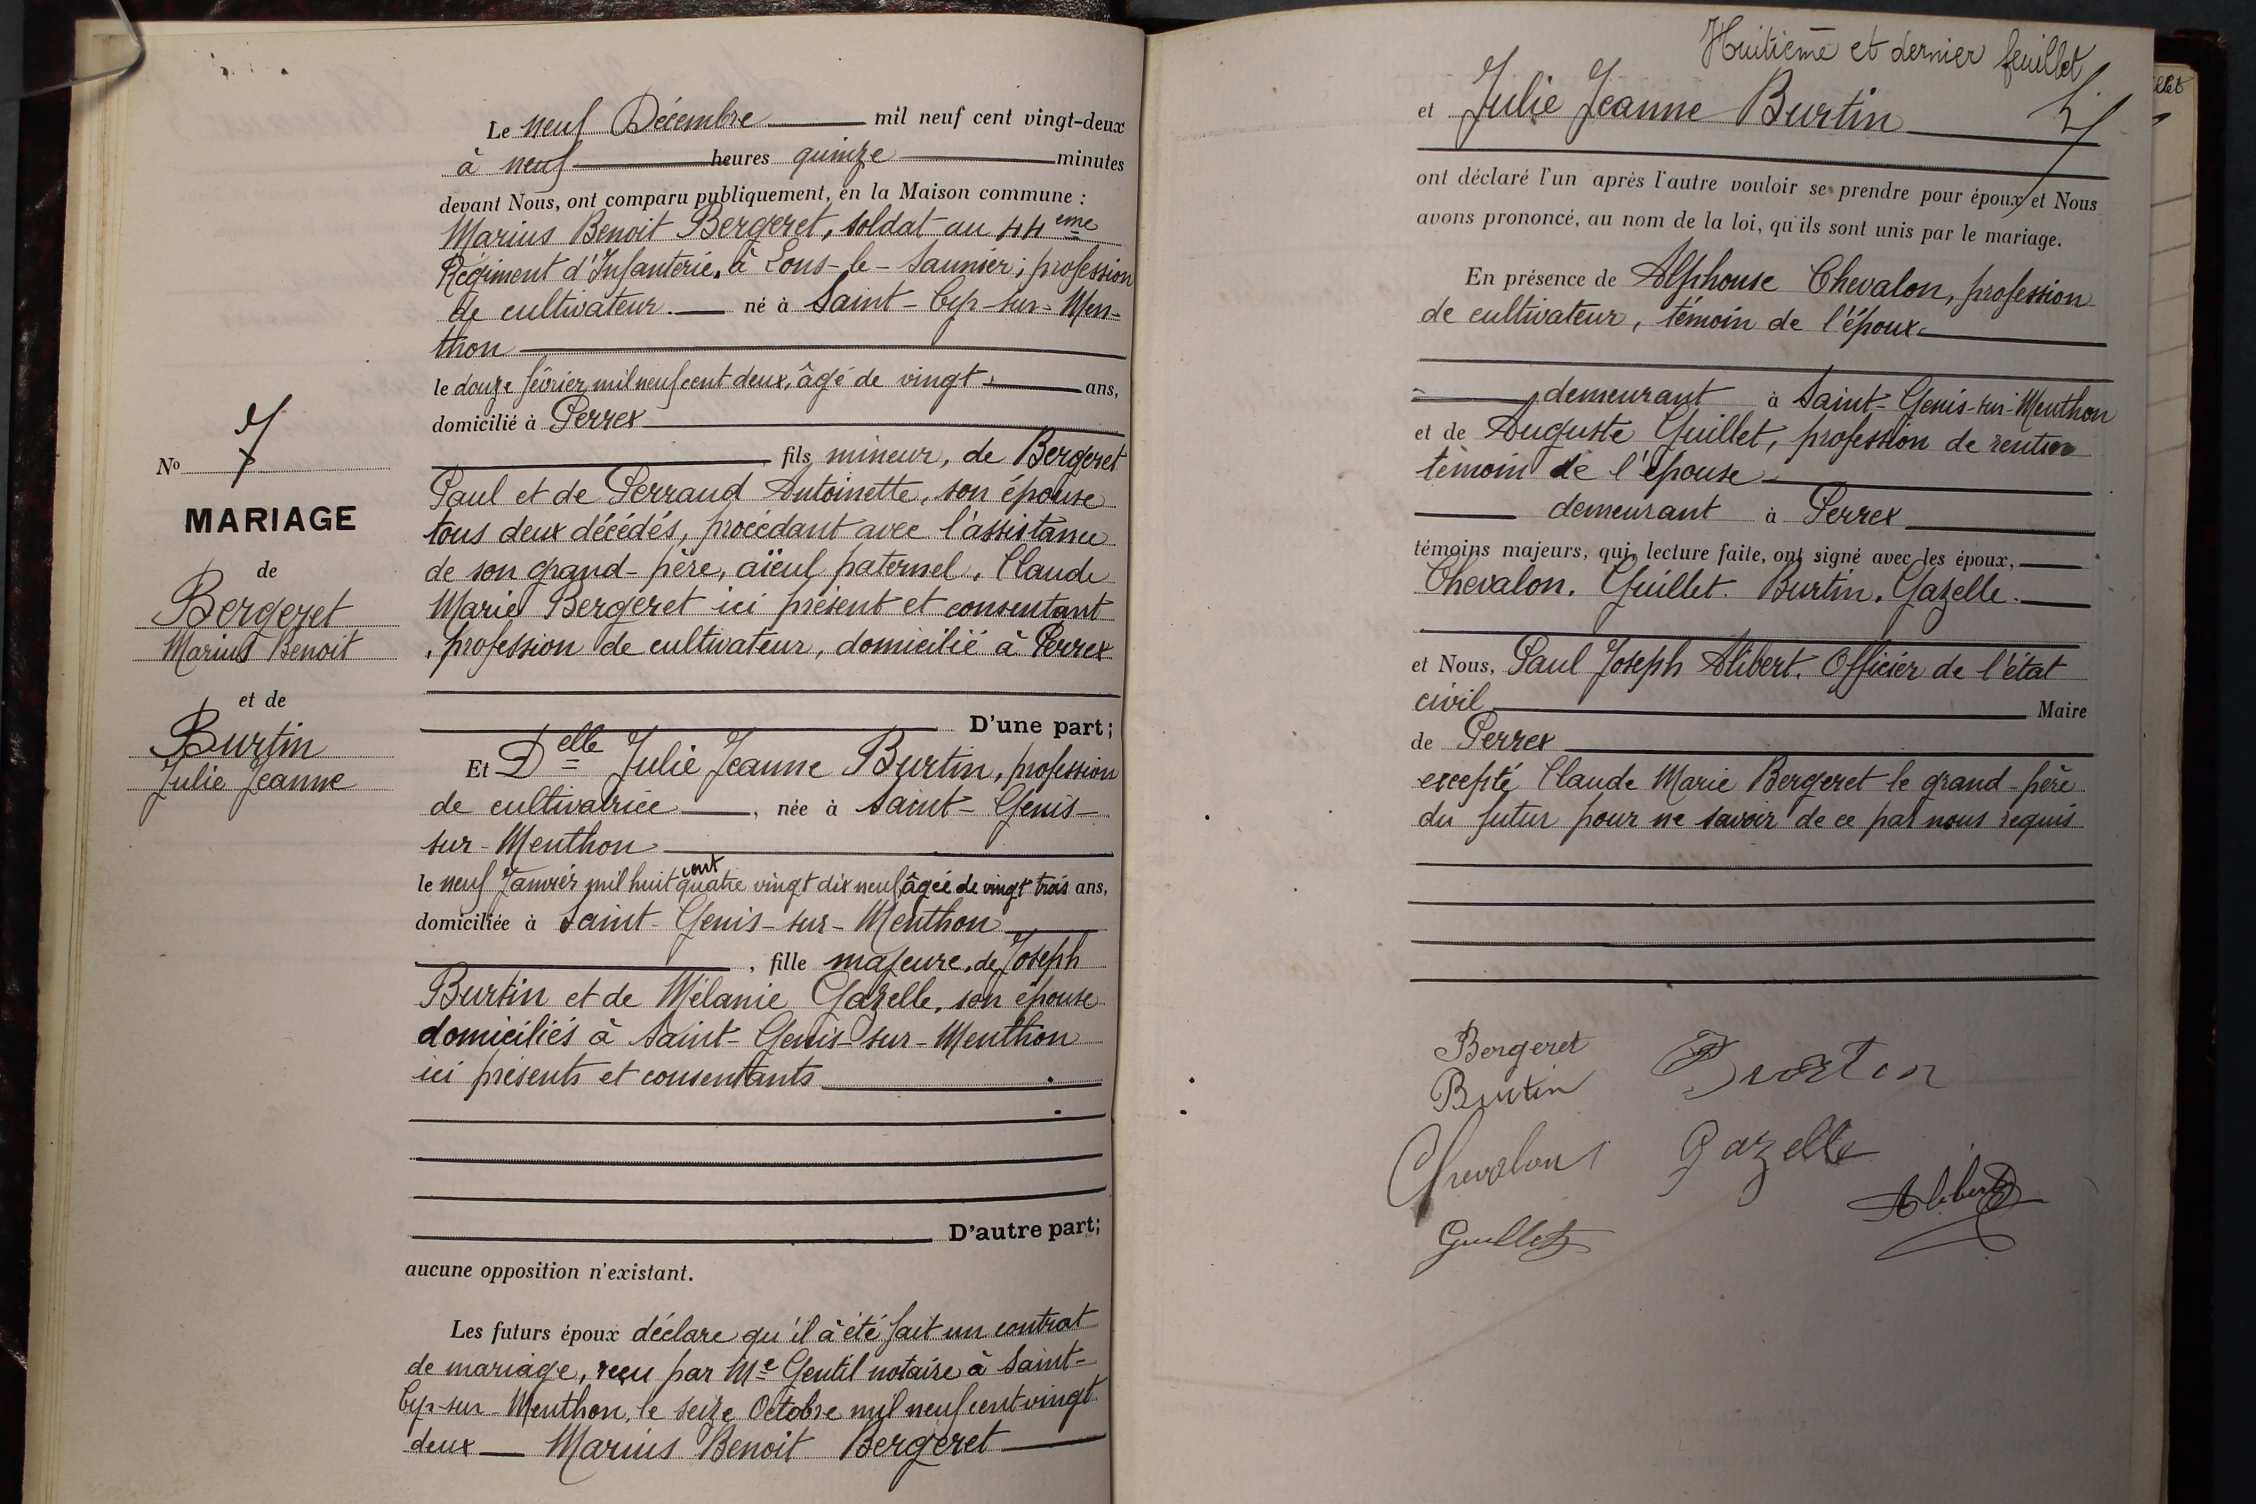 Le neuf Décembre mil neuf cent vingt-deux
à neuf heures quinze minutes
devant Nous, ont comparu publiquement, en la Maison commune :
Marius Benoit Bergeret, soldat au 44eme
Régiment d'Infanterie, à Lons-le-Saunier ; profession
de cultivateur. né à Saint-Cyr-sur-Men-
thon
le douze février mil neuf cent deux, âgé de vingt ans,
domicilié à Perrex
fils mineur, de Bergeret
Paul et de Perraud Antoinette, son épouse
tous deux décédés, procédant avec l'assistance
de son grand-père, aïeul paternel, Claude
Marie Bergeret ici présent et consentant
, profession de cultivateur, domicilié à Perrex
D'une part;
Et Delle Julie Jeanne Burtin, profession
de cultivatrice, née à Saint-Genis-
sur-Menthon
le neuf Janvier mil huit cent quatre vingt dix neuf âgée de vingt trois ans,
domiciliée à Saint-Genis-sur-Menthon
, fille majeure, de Joseph
Burtin et de Mélanie Gazelle, son épouse
domiciliés à Saint-Genis-sur-Menthon
ici présents et consentants
D'autre part;
aucune opposition n'existant.
Les futurs époux déclare qu'il à été fait un contrat
de mariage, reçu par Me Gentil notaire à Saint-
Cyr-sur-Menthon, le seize Octobre mil neuf cent vingt
deux Marius Benoit Bergeret
No 7
MARIAGE
de
Bergeret
Marius Benoit
et de
Burtin
Julie Jeanne
Huitième et dernier feuillet
et Julie Jeanne Burtin
ont déclaré l'un après l'autre vouloir se prendre pour époux et Nous
avons prononcé, au nom de la loi, qu'ils sont unis par le mariage.
En présence de Alphonse Chevalon, profession
de cultivateur, témoin de l'époux
demeurant à Saint-Genis-sur-Menthon
et de Auguste Guillet, profession de rentier
témoin de l'épouse
demeurant à Perrex
témoins majeurs, qui, lecture faite, ont signé avec les époux,
Chevalon. Guillet. Burtin. Gazelle.
et Nous, Paul Joseph Alibert. Officier de l'état
civil Maire
de Perrex
excepté Claude Marie Bergeret le grand-père
du futur pour ne savoir de ce par nous requis
Bergeret
Burtin
Burtin
Chevalon
Gazelle
Alibert
Guillet